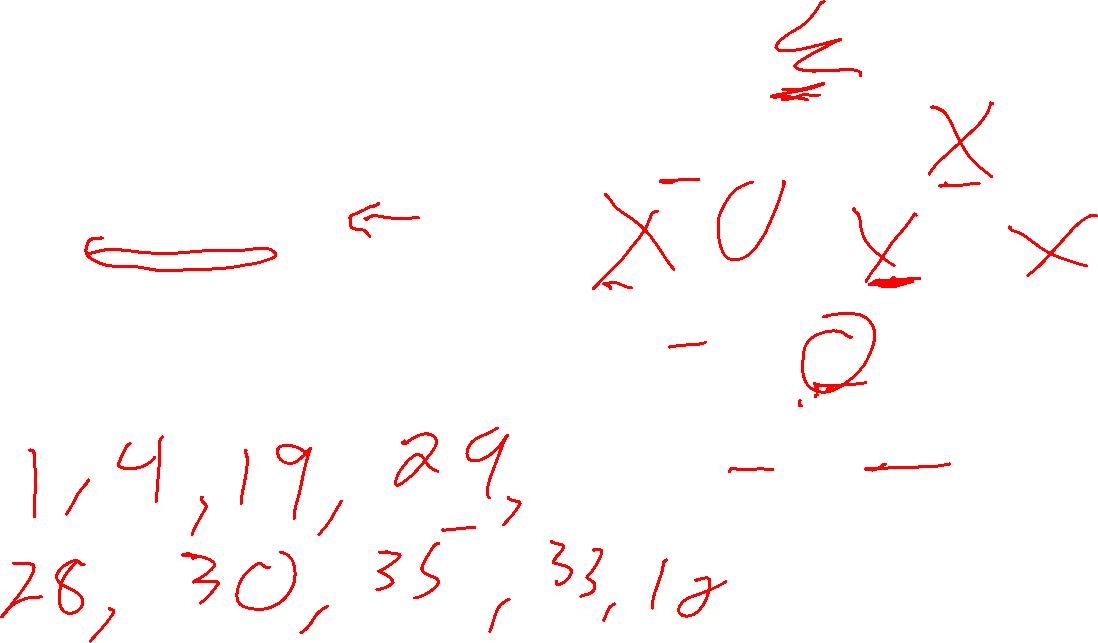 X
X O X X
O
1, 4, 19, 29,
28, 30, 35, 33, 18